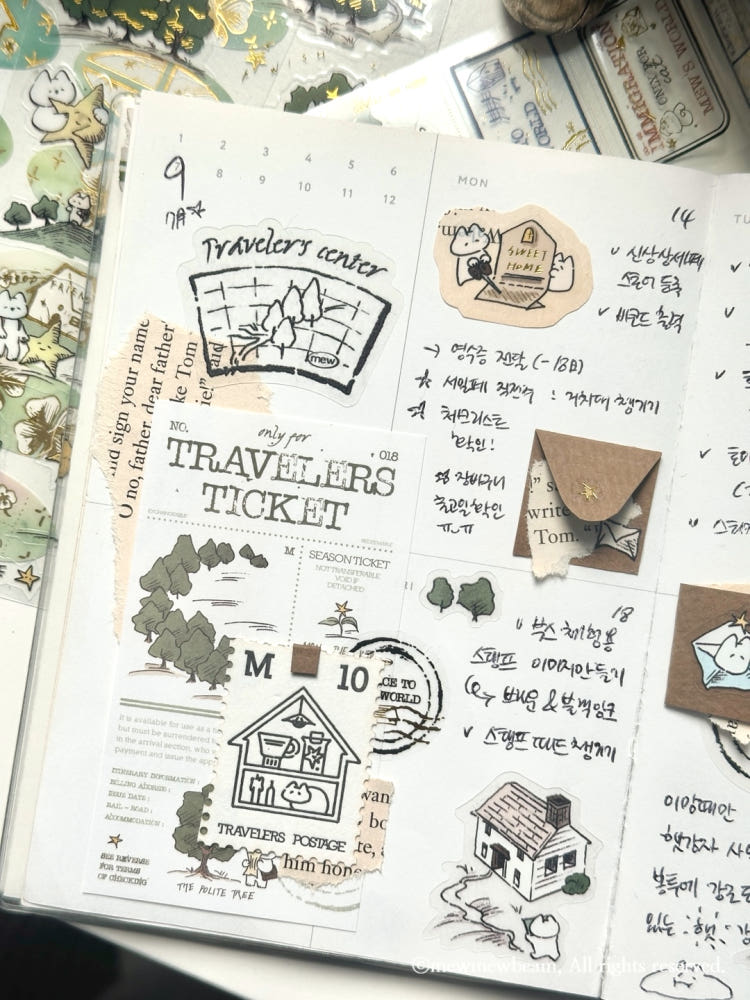 MEW'S WORLD
ONLY FOR cat
IMMIGRATION
1 2 3 4 5 6
7 8 9 10 11 12
9
MON
TU
Travelers center
mew
SWEET
HOME
14
신상상세페
스토어 등록
바코드 출력
→ 영수증 전달 (-18日)
☆ 서일페 직전속 : 거치대 챙기기
체크리스트
확인!
장바구니
ㅠ_ㅠ
and sign your name
O no, father, dear father
ke Tom
ie!"
said
write
Tom. "
NO.
only for
018
TRAVELERS
TICKET
EXCHANGEABLE
REDEEMABLE
M
SEASON TICKET
NOT TRANSFERABLE
VOID IF
DETACHED
It is available for use as a
but must be surrendered
in the arrival section, who
payment and issue the app
ITINERARY INFORMATION :
BILLING ADDRESS :
ISSUE DATE :
RAIL - ROAD :
ACCOMMODATION :
SEE REVERSE
FOR TERMS
OF CHECKING
THE POLITE TREE
M 10
TRAVELERS POSTAGE
CE TO
WORLD
wan
bo
te, a
him hope
18
박스 체험용
스탬프 이미지만들기
브라운 & 블랙잉크
스탬프 패드 챙기기
이맘때만
햇감자
봉투에
있는 햇
©mewmewbeam, All rights reserved.